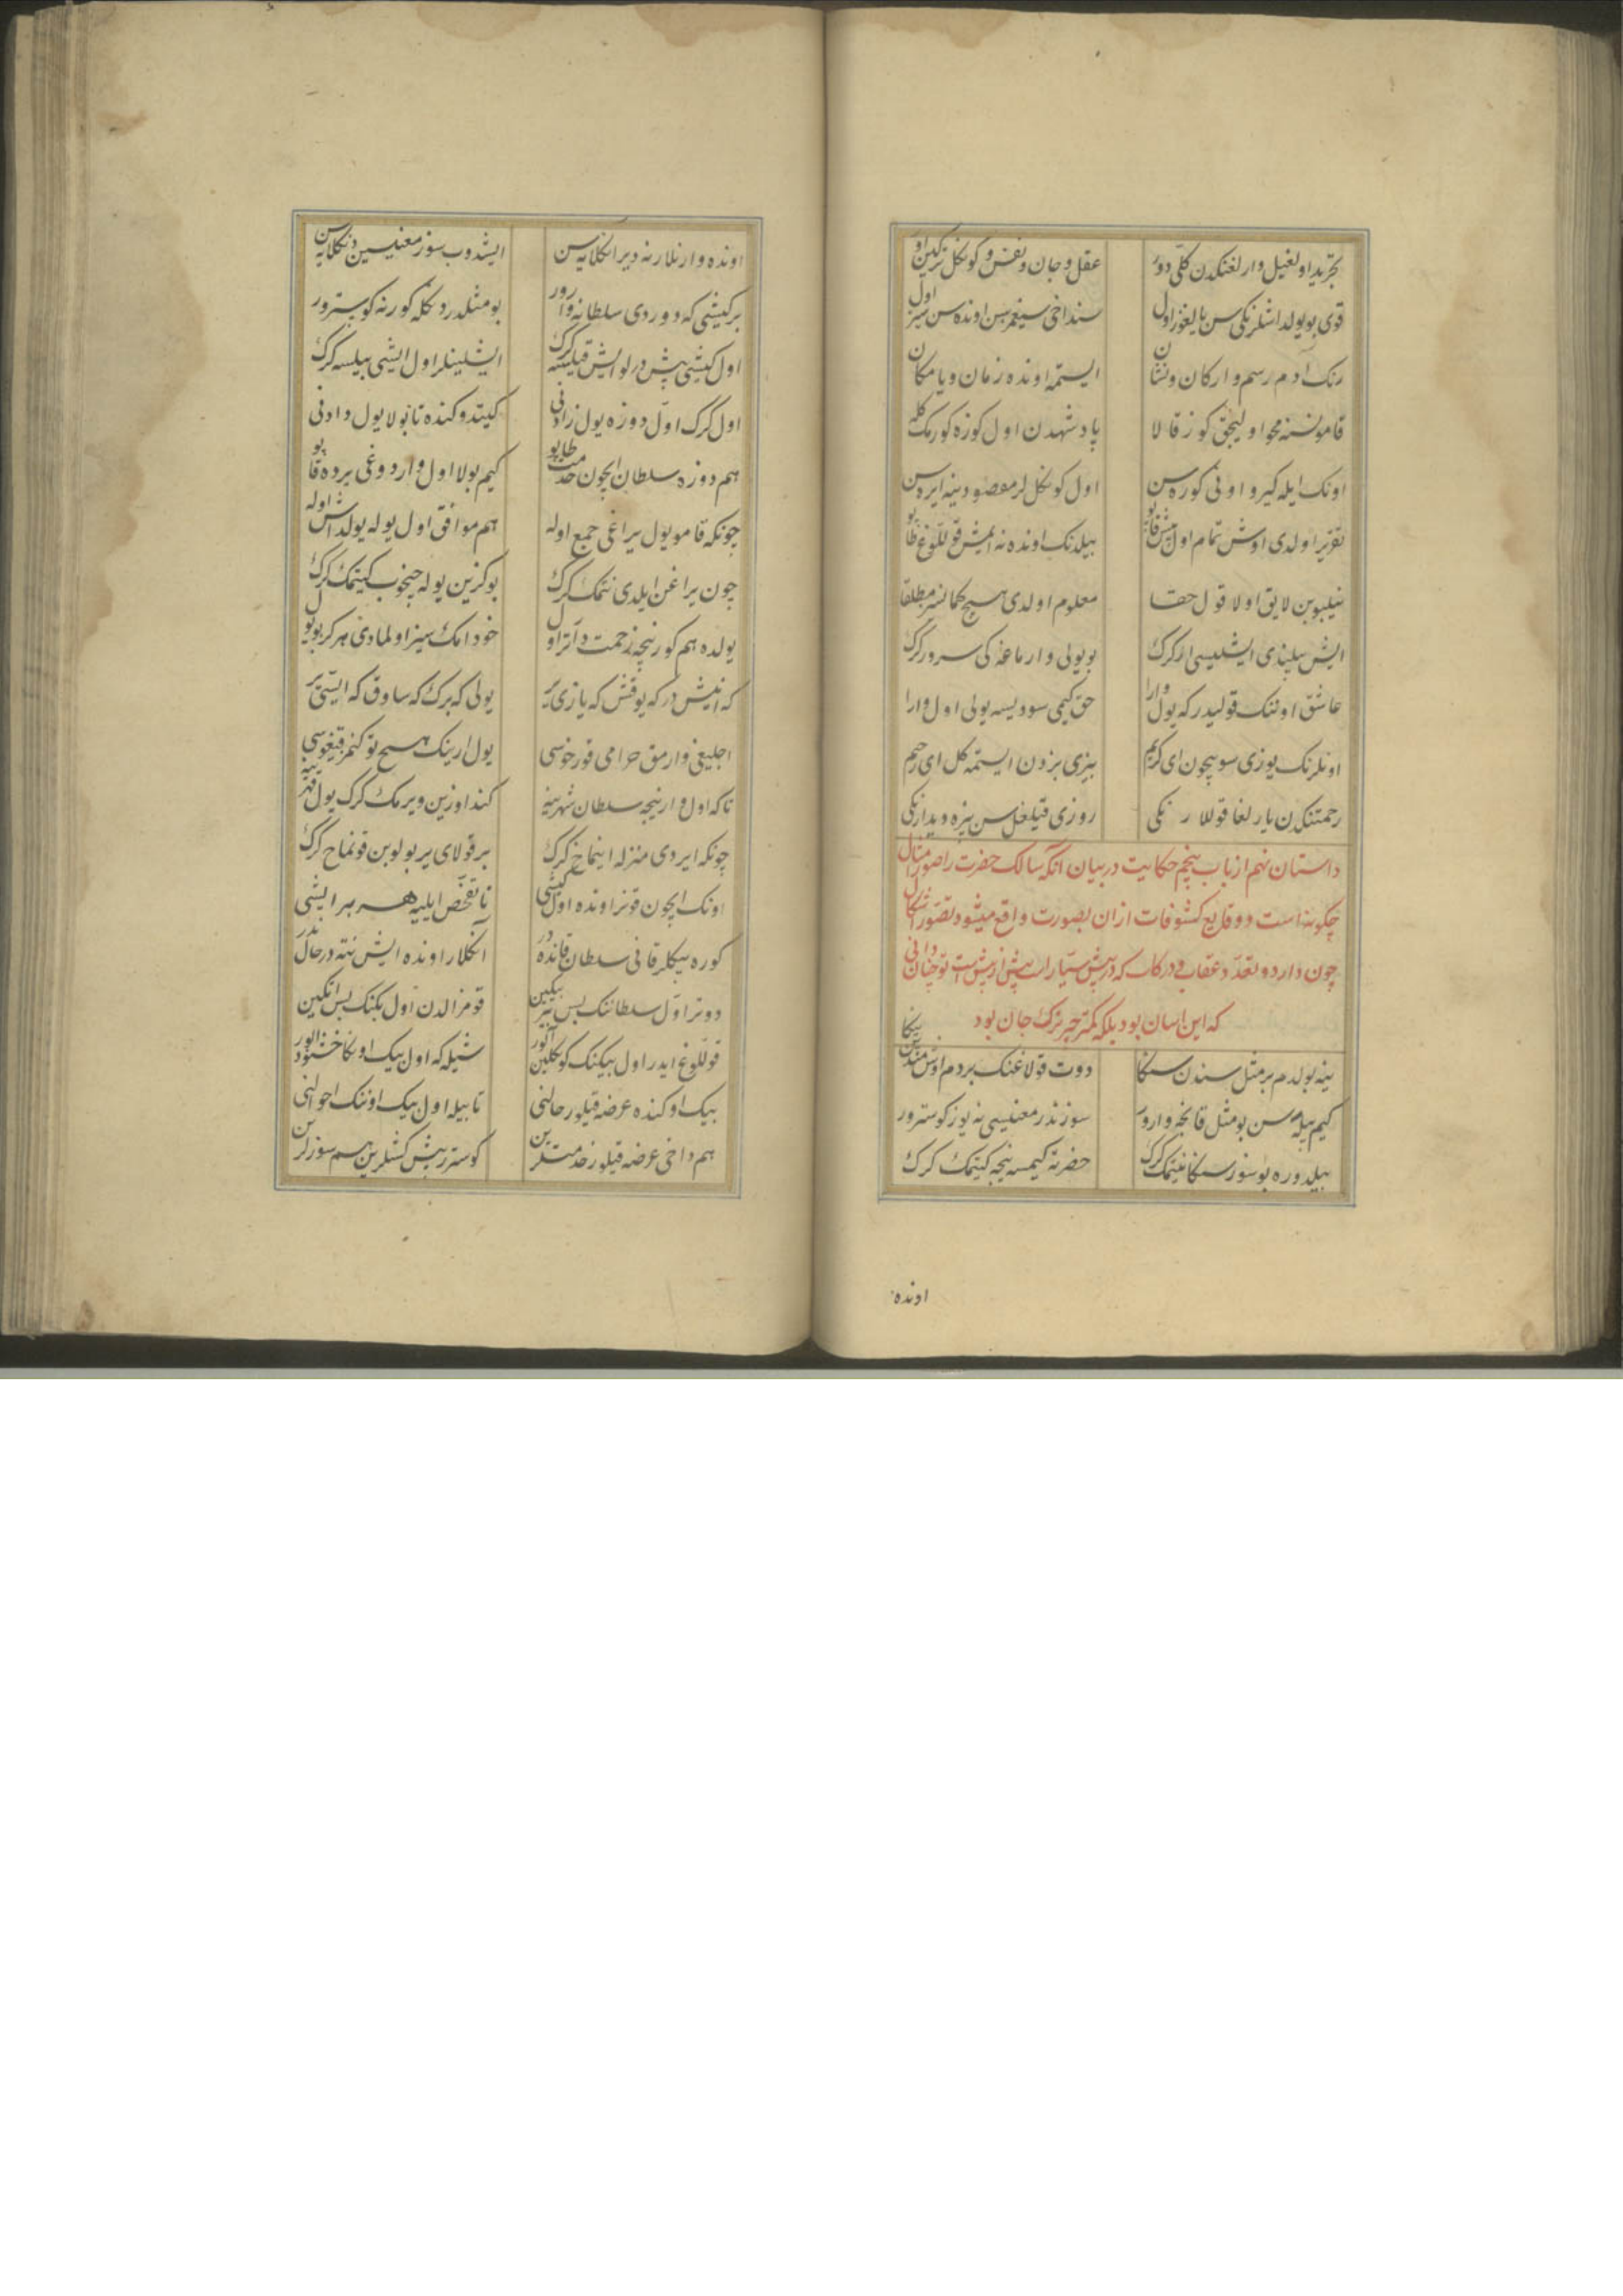 تجرید اولغیل وارلغنکدن کلی دور عقل و جان و نفس و کوکل ترکین اور
قوی بو یولداشلرنکی سن یالغوز اول سنداخی سیغمزسن اونده سن سیز اول
رنک آدم رسم و ارکان و نشان ایستمه اونده زمان و یا مکان
قامو نسنه محو اولیجق کوز قالا پادشهدن اول کوزه کورمک کله
اونک ایله کیرو اونی کوره سن اول کوکللر مقصودینه ایره سن
تقریر اولدی اوش تمام اول بیش قاپو بیلدنک اونده نه ایمش قوللوغ طاپو
نیلیوبن لایق اولا قول حقا معلوم اولدی هیچ کمانسز مطلقا
ایش بیلیندی ایشلیسی ار کرک بو یولی وارماغه کی سرور کرک
عاشق اوننک قولیدر که یول وارا حق کیمی سوویسه یولی اول وارا
اونلرنک یوزی سویچون ای کریم بیزی بزدن ایستمه کل ای رحیم
رحمتنکدن یارلغا قوللارنکی روزی قیلغل سن بیزه دیدارنکی
داستان نهم از باب پنجم حکایت در بیان آنکه سالک حضرت را صور امثال
چکونه است و وقایع کشوفات از ان بصورت واقع میشود تصور اشکال
چون دارد و تعدد عقاب و درکات که در پیش سیار است بیش از بیش است تو چنان دانی
که این اسان بود بلکه کمتر چیز ترک جان بود
ینه بولدم بر مثل سندن سنکا دوت قولاغنک بر دم اوش مندن ینکا
کیم بیله سن بو مثل قانجه وارور سوز ندر معنیسی نه یوز کوسترور
بیلدوره بو سوز سنکا نیتمک کرک حضرته کیمسه نیجه کیتمک کرک
اونده
اونده وارنلار نه دیر انکلایه سن ایشدوب سوز معنیسین دنکلایه سن
بر کیشی که دوردی سلطانه وارور بو مثلدر دنکله کور نه کوسترور
اول کیشی بیش درلو ایش قیلسه کرک ایشلینلر اول ایشی بیلسه کرک
اول کرک اول دوزه یول زادنی کیتدوکنده تا بولا یول دادنی
هم دوزه سلطان ایچون خدمت طاپو کیم بولا اول واردوغی یرده قاپو
چونکه قامو یول یراغی جمع اوله هم موافق اول یوله یولداش اوله
چون یراغن ایلدی نتمک کرک بوکزین یوله چیخوب کیتمک کرک
یولده هم کور نیچه زحمت دارتر اول خود امکسیز اولمادی هرکز بو یول
که انیش در که یوقش که یازی یر یولی که برک که ساوق که ایسّی یر
اجلیغی وارمق حرامی قورخوسی یول ارینک هیچ توکنمز قیغوسی
تا که اول وارنیجه سلطان شهرینه کند اوزین ویرمک کرک یول قهرینه
چونکه ایردی منزله اینماخ کرک بر قولای یر بولوبن قونماخ کرک
اونک ایچون قونر اونده اول کیشی تا تفحص ایلیه هر بر ایشی
کوره بیکلر قانی سلطان قانده در آنکلار اونده ایش نته در حال ندر
دوتر اول سلطاننک بس بیر بیکین قومز الدن اول بکنک بس اتکین
قوللوغ ایدر اول بیکنک کوکلین آلور شیله که اول بیک اونکا خشنود اولور
بیک اوکنده عرضه قیلور حالنی تا بیله اول بیک اوننک احوالنی
هم داخی عرضه قیلور خدمتلرین کوستر بیشکشلرین هم سوزلرین